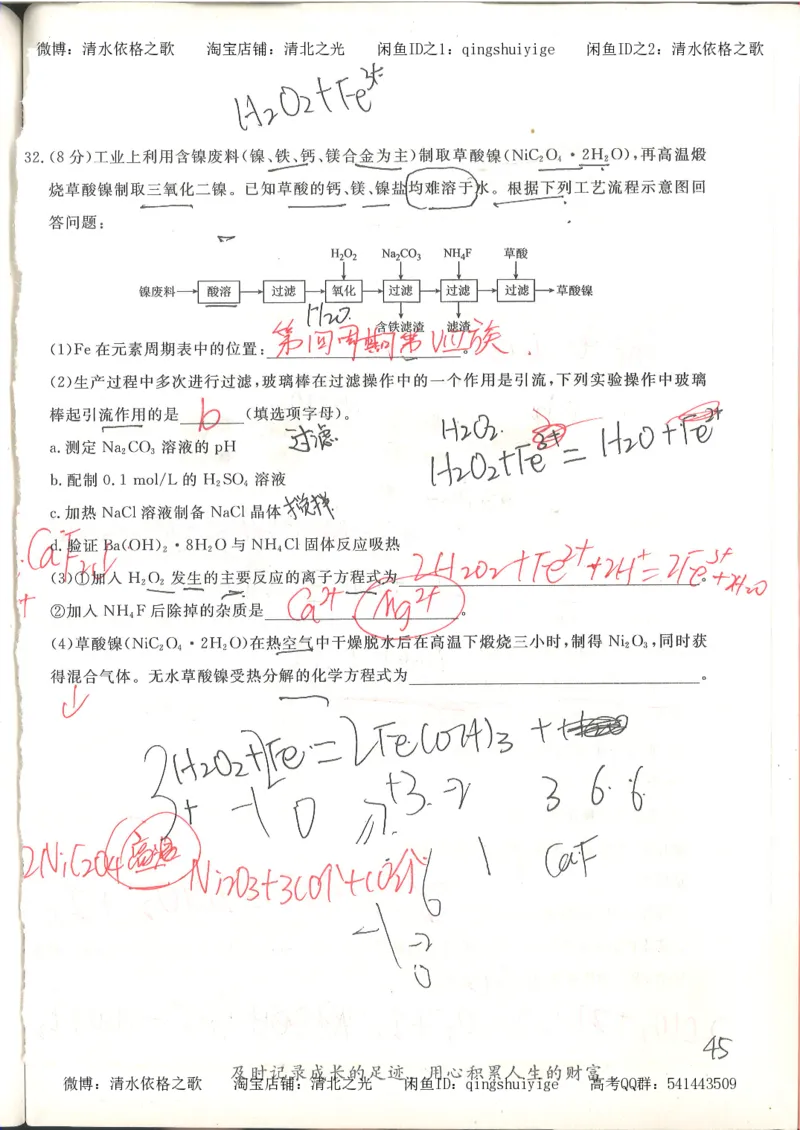 微博：清水依格之歌 淘宝店铺：清北之光 闲鱼ID之1：qingshuiyige 闲鱼ID之2：清水依格之歌
H2O2+Fe3+
32.(8分)工业上利用含镍废料(镍、铁、钙、镁合金为主)制取草酸镍(NiC₂O₄·2H₂O),再高温煅
烧草酸镍制取三氧化二镍。已知草酸的钙、镁、镍盐均难溶于水。根据下列工艺流程示意图回
答问题:
H₂O₂ Na₂CO₃ NH₄F 草酸
镍废料 酸溶 过滤 氧化 过滤 过滤 过滤 草酸镍
H2O.
含铁滤渣 滤渣
(1)Fe在元素周期表中的位置:第四周期第VIII族。
(2)生产过程中多次进行过滤,玻璃棒在过滤操作中的一个作用是引流,下列实验操作中玻璃
棒起引流作用的是 b (填选项字母)。
H2O2.
a.测定Na₂CO₃溶液的pH 过滤
H2O2+Fe3+=H2O+Fe2+
b.配制0.1 mol/L的H₂SO₄溶液
c.加热NaCl溶液制备NaCl晶体 搅拌
d.验证Ba(OH)₂·8H₂O与NH₄Cl固体反应吸热
(3)①加入H₂O₂发生的主要反应的离子方程式为 2H2O2+Fe2++2H+=2Fe3++2H2O。
②加入NH₄F后除掉的杂质是 Ca2+ Mg2+。
(4)草酸镍(NiC₂O₄·2H₂O)在热空气中干燥脱水后在高温下煅烧三小时,制得Ni₂O₃,同时获
得混合气体。无水草酸镍受热分解的化学方程式为。
3H2O2+2Fe=2Fe(OH)3+
+ -1 0 +3 -2 3 6 6
2NiC2O4 高温 Ni2O3+3CO↑+CO2↑
6 1 CaF
-1 -2
0
45
及时记录成长的足迹 用心积累人生的财富
微博：清水依格之歌 淘宝店铺：清北之光 闲鱼ID：qingshuiyige 高考QQ群：541443509